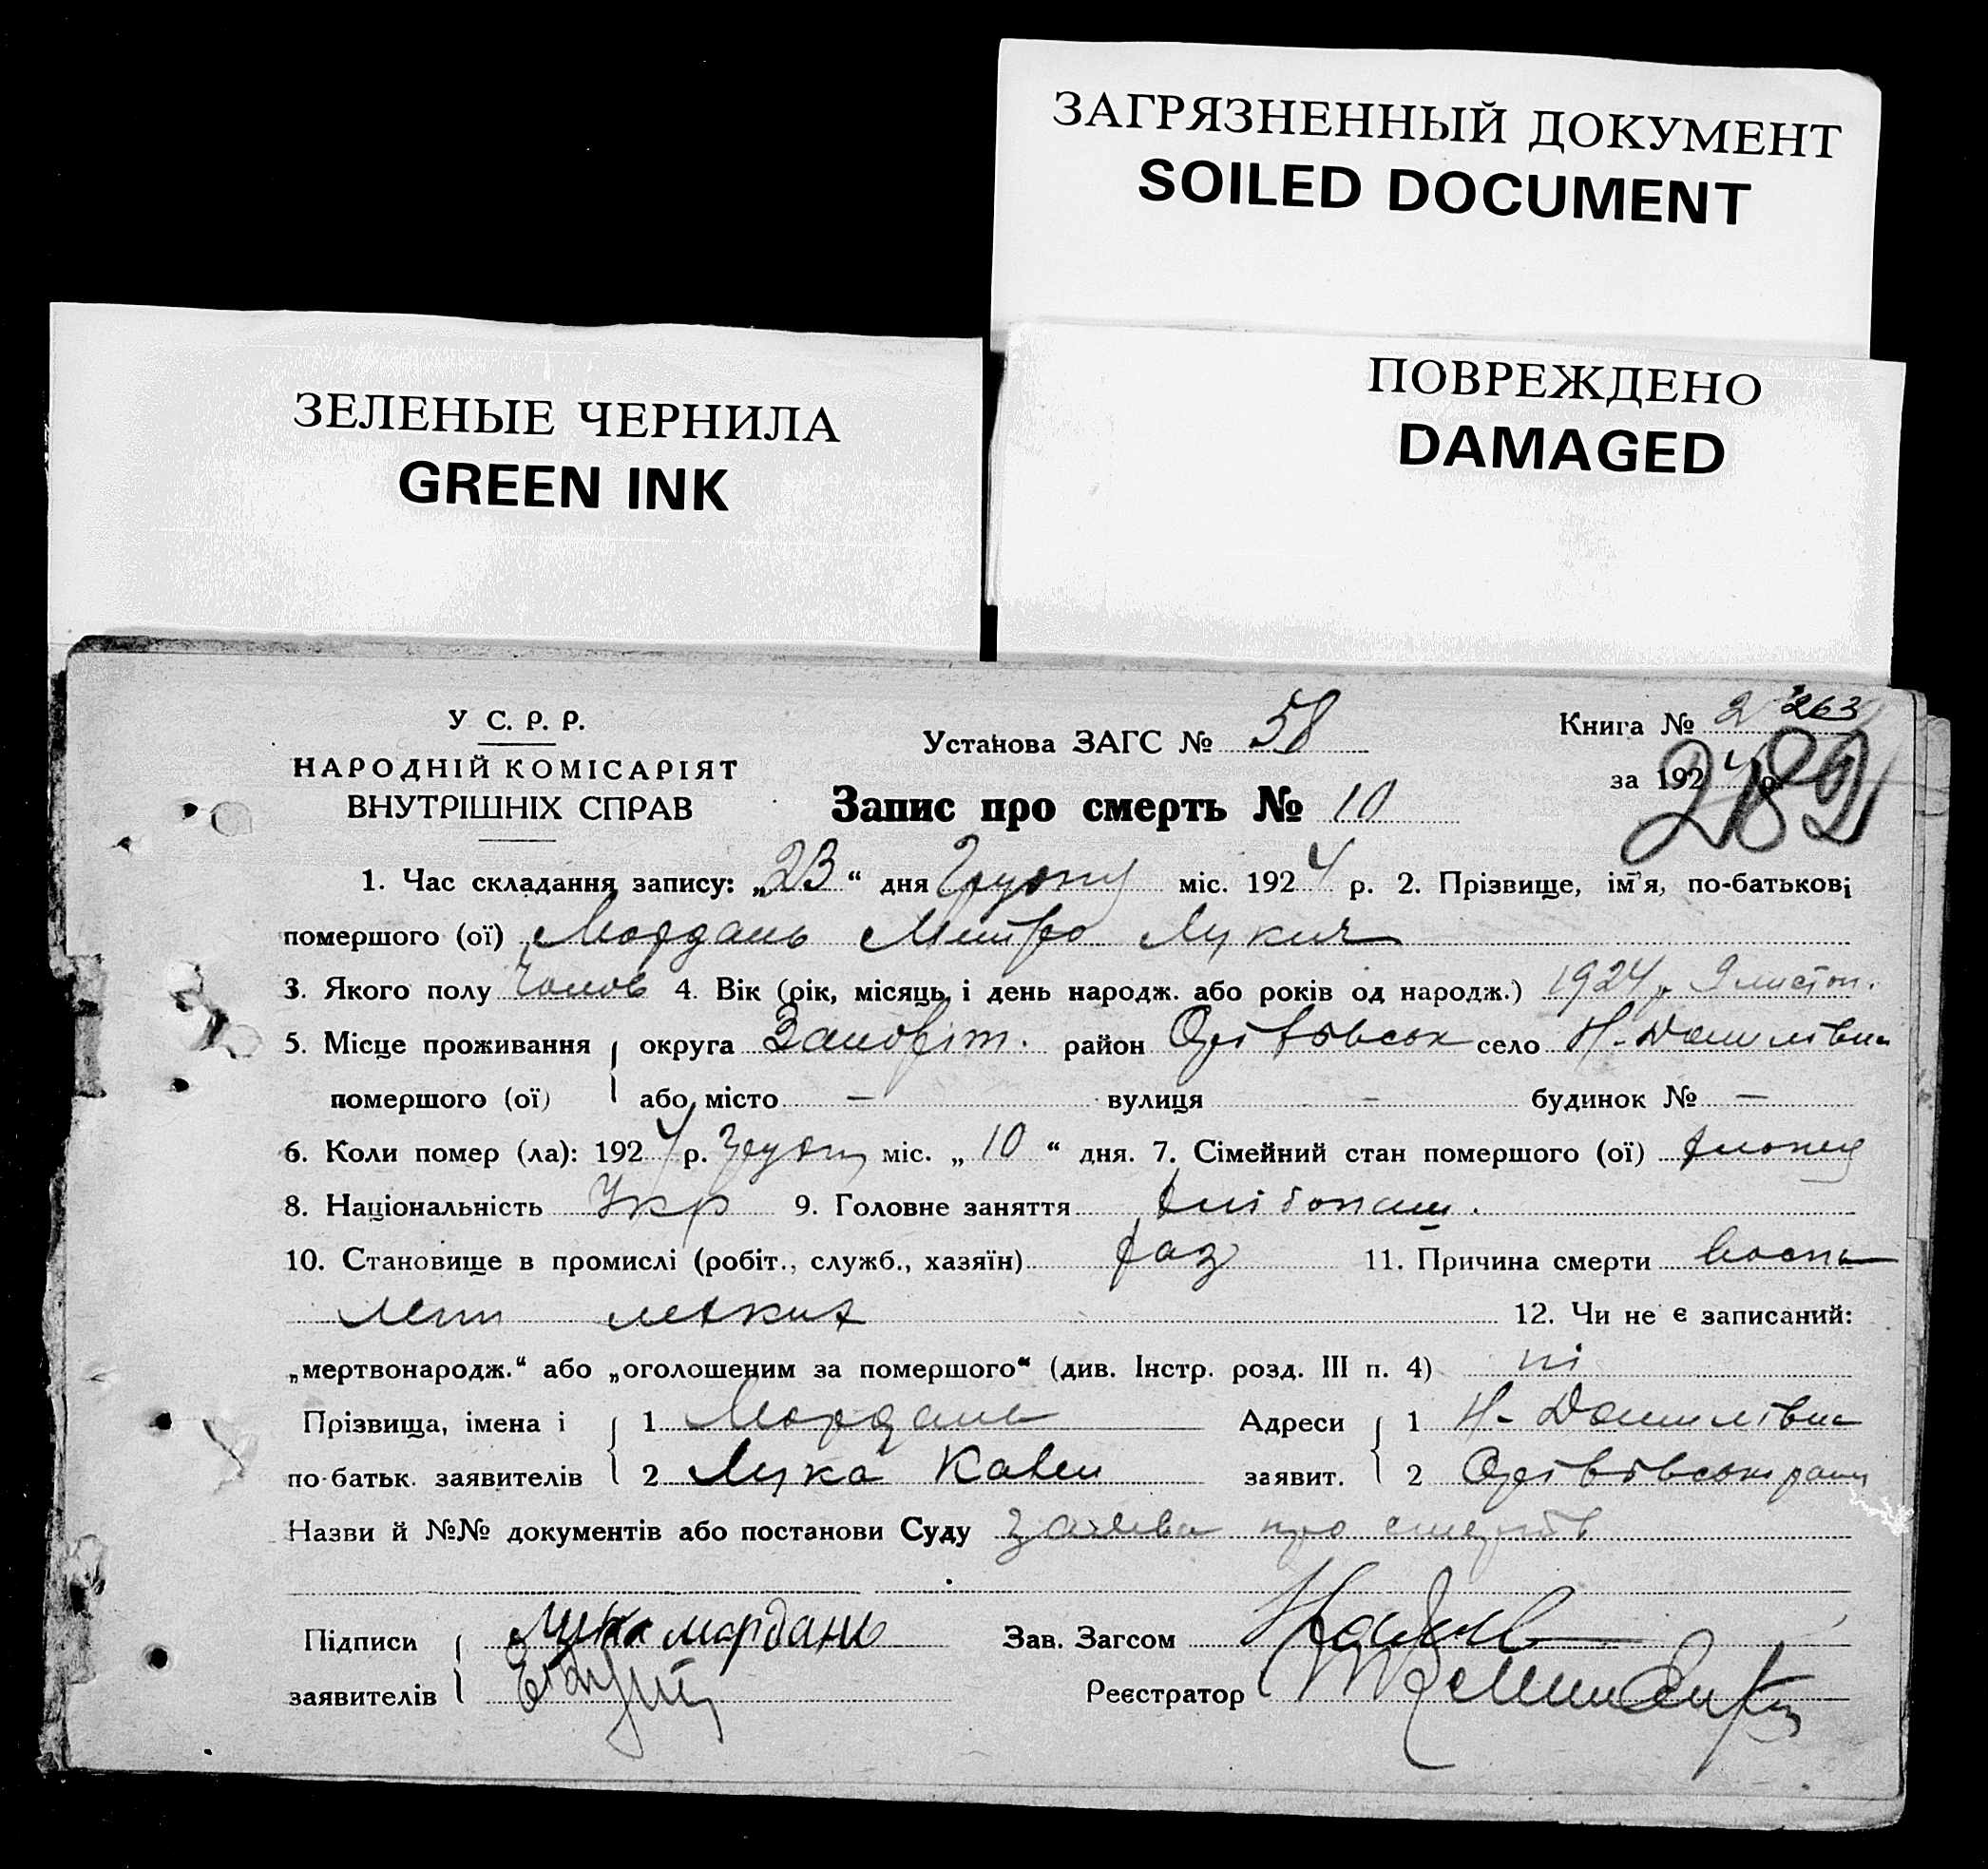 ЗАГРЯЗНЕННЫЙ ДОКУМЕНТ
SOILED DOCUMENT
ЗЕЛЕНЫЕ ЧЕРНИЛА
GREEN INK
ПОВРЕЖДЕНО
DAMAGED
У С. Р. Р.
НАРОДНІЙ КОМІСАРІЯТ
ВНУТРІШНІХ СПРАВ
Установа ЗАГС № 58
Книга № 2 263
за 1924 р.
282
Запис про смерть № 10
1. Час складання запису: „23“ дня Грудня міс. 1924 р. 2. Прізвище, ім'я, по-батькові
помершого (ої) Мордань Митро Лукич
3. Якого полу Чолов 4. Вік (рік, місяць і день народж. або років од народж.) 1924 р. 9 листоп.
5. Місце проживання округа Запоріж. район село Н-Данилівка
помершого (ої) або місто — вулиця - будинок № —
6. Коли помер (ла): 1924 р. Грудня міс. „10“ дня. 7. Сімейний стан помершого (ої) хлопец
8. Національність Укр 9. Головне заняття хлібопаш.
10. Становище в промислі (робіт., служб., хазяїн) хаз 11. Причина смерти воспа
легких 12. Чи не є записаний:
„мертвонародж.“ або „оголошеним за помершого“ (див. Інстр. розд. III п. 4) ні
Прізвища, імена і 1 Мордань Адреси 1 Н-Данилівка
по-батьк. заявителів 2 Лука заявит. 2
Назви й №№ документів або постанови Суду заява про смерть
Підписи Лука мордань Зав. Загсом
заявителів Реєстратор